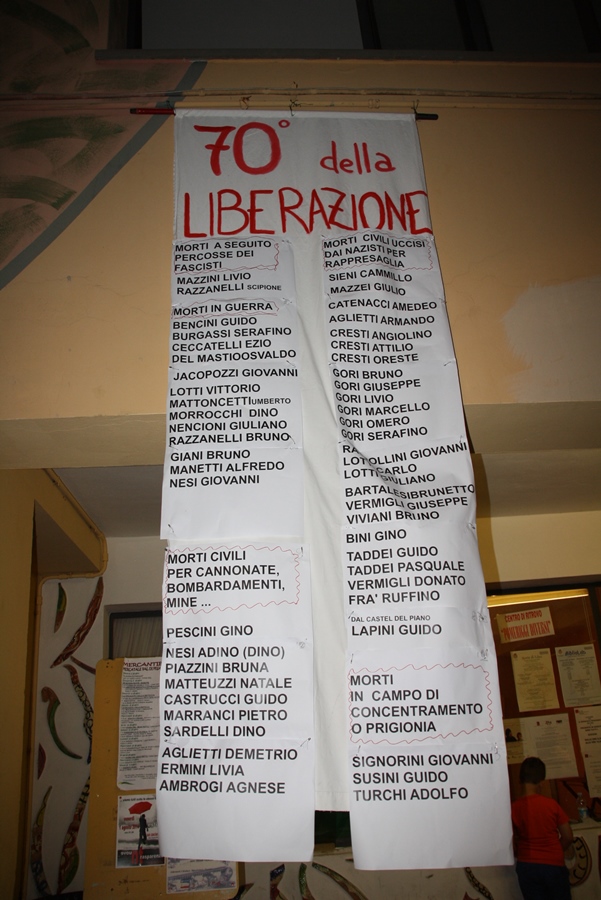 70° della
LIBERAZIONE
MORTI A SEGUITO
PERCOSSE DEI
FASCISTI
MAZZINI LIVIO
RAZZANELLI SCIPIONE
MORTI IN GUERRA
BENCINI GUIDO
BURGASSI SERAFINO
CECCATELLI EZIO
DEL MASTIOOSVALDO
JACOPOZZI GIOVANNI
LOTTI VITTORIO
MATTONCETTIUMBERTO
MORROCCHI DINO
NENCIONI GIULIANO
RAZZANELLI BRUNO
GIANI BRUNO
MANETTI ALFREDO
NESI GIOVANNI
MORTI CIVILI
PER CANNONATE,
BOMBARDAMENTI,
MINE ...
PESCINI GINO
NESI ADINO (DINO)
PIAZZINI BRUNA
MATTEUZZI NATALE
CASTRUCCI GUIDO
MARRANCI PIETRO
SARDELLI DINO
AGLIETTI DEMETRIO
ERMINI LIVIA
AMBROGI AGNESE
MORTI CIVILI UCCISI
DAI NAZISTI PER
RAPPRESAGLIA
SIENI CAMMILLO
MAZZEI GIULIO
CATENACCI AMEDEO
AGLIETTI ARMANDO
CRESTI ANGIOLINO
CRESTI ATTILIO
CRESTI ORESTE
GORI BRUNO
GORI GIUSEPPE
GORI LIVIO
GORI MARCELLO
GORI OMERO
GORI SERAFINO
GIOVANNI
BARTALESIBRUNETTO
VERMIGLI GIUSEPPE
VIVIANI BRUNO
BINI GINO
TADDEI GUIDO
TADDEI PASQUALE
VERMIGLI DONATO
FRA' RUFFINO
DAL CASTEL DEL PIANO
LAPINI GUIDO
MORTI
IN CAMPO DI
CONCENTRAMENTO
O PRIGIONIA
SIGNORINI GIOVANNI
SUSINI GUIDO
TURCHI ADOLFO
CENTRO DI RITROVO